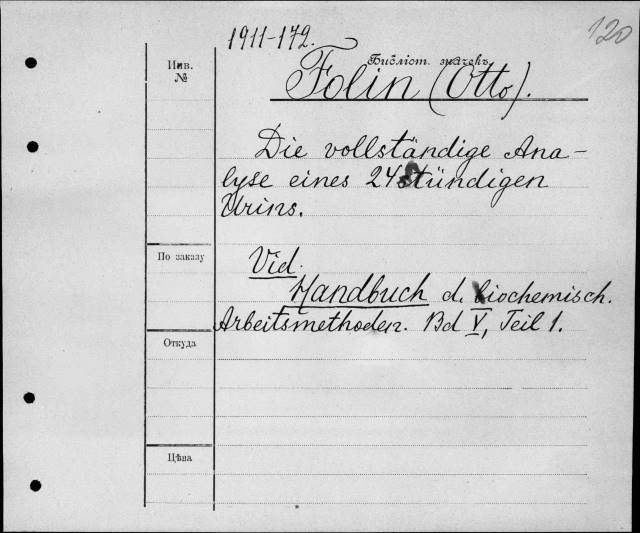 120
1911-172.
Инв.
№
Библіот. значекъ
Folin (Otto).
Die vollständige Ana-
lyse eines 24stündigen
Urins.
По заказу
Vid.
Handbuch d. biochemisch.
Arbeitsmethoden. Bd V, Teil 1.
Откуда
Цѣна